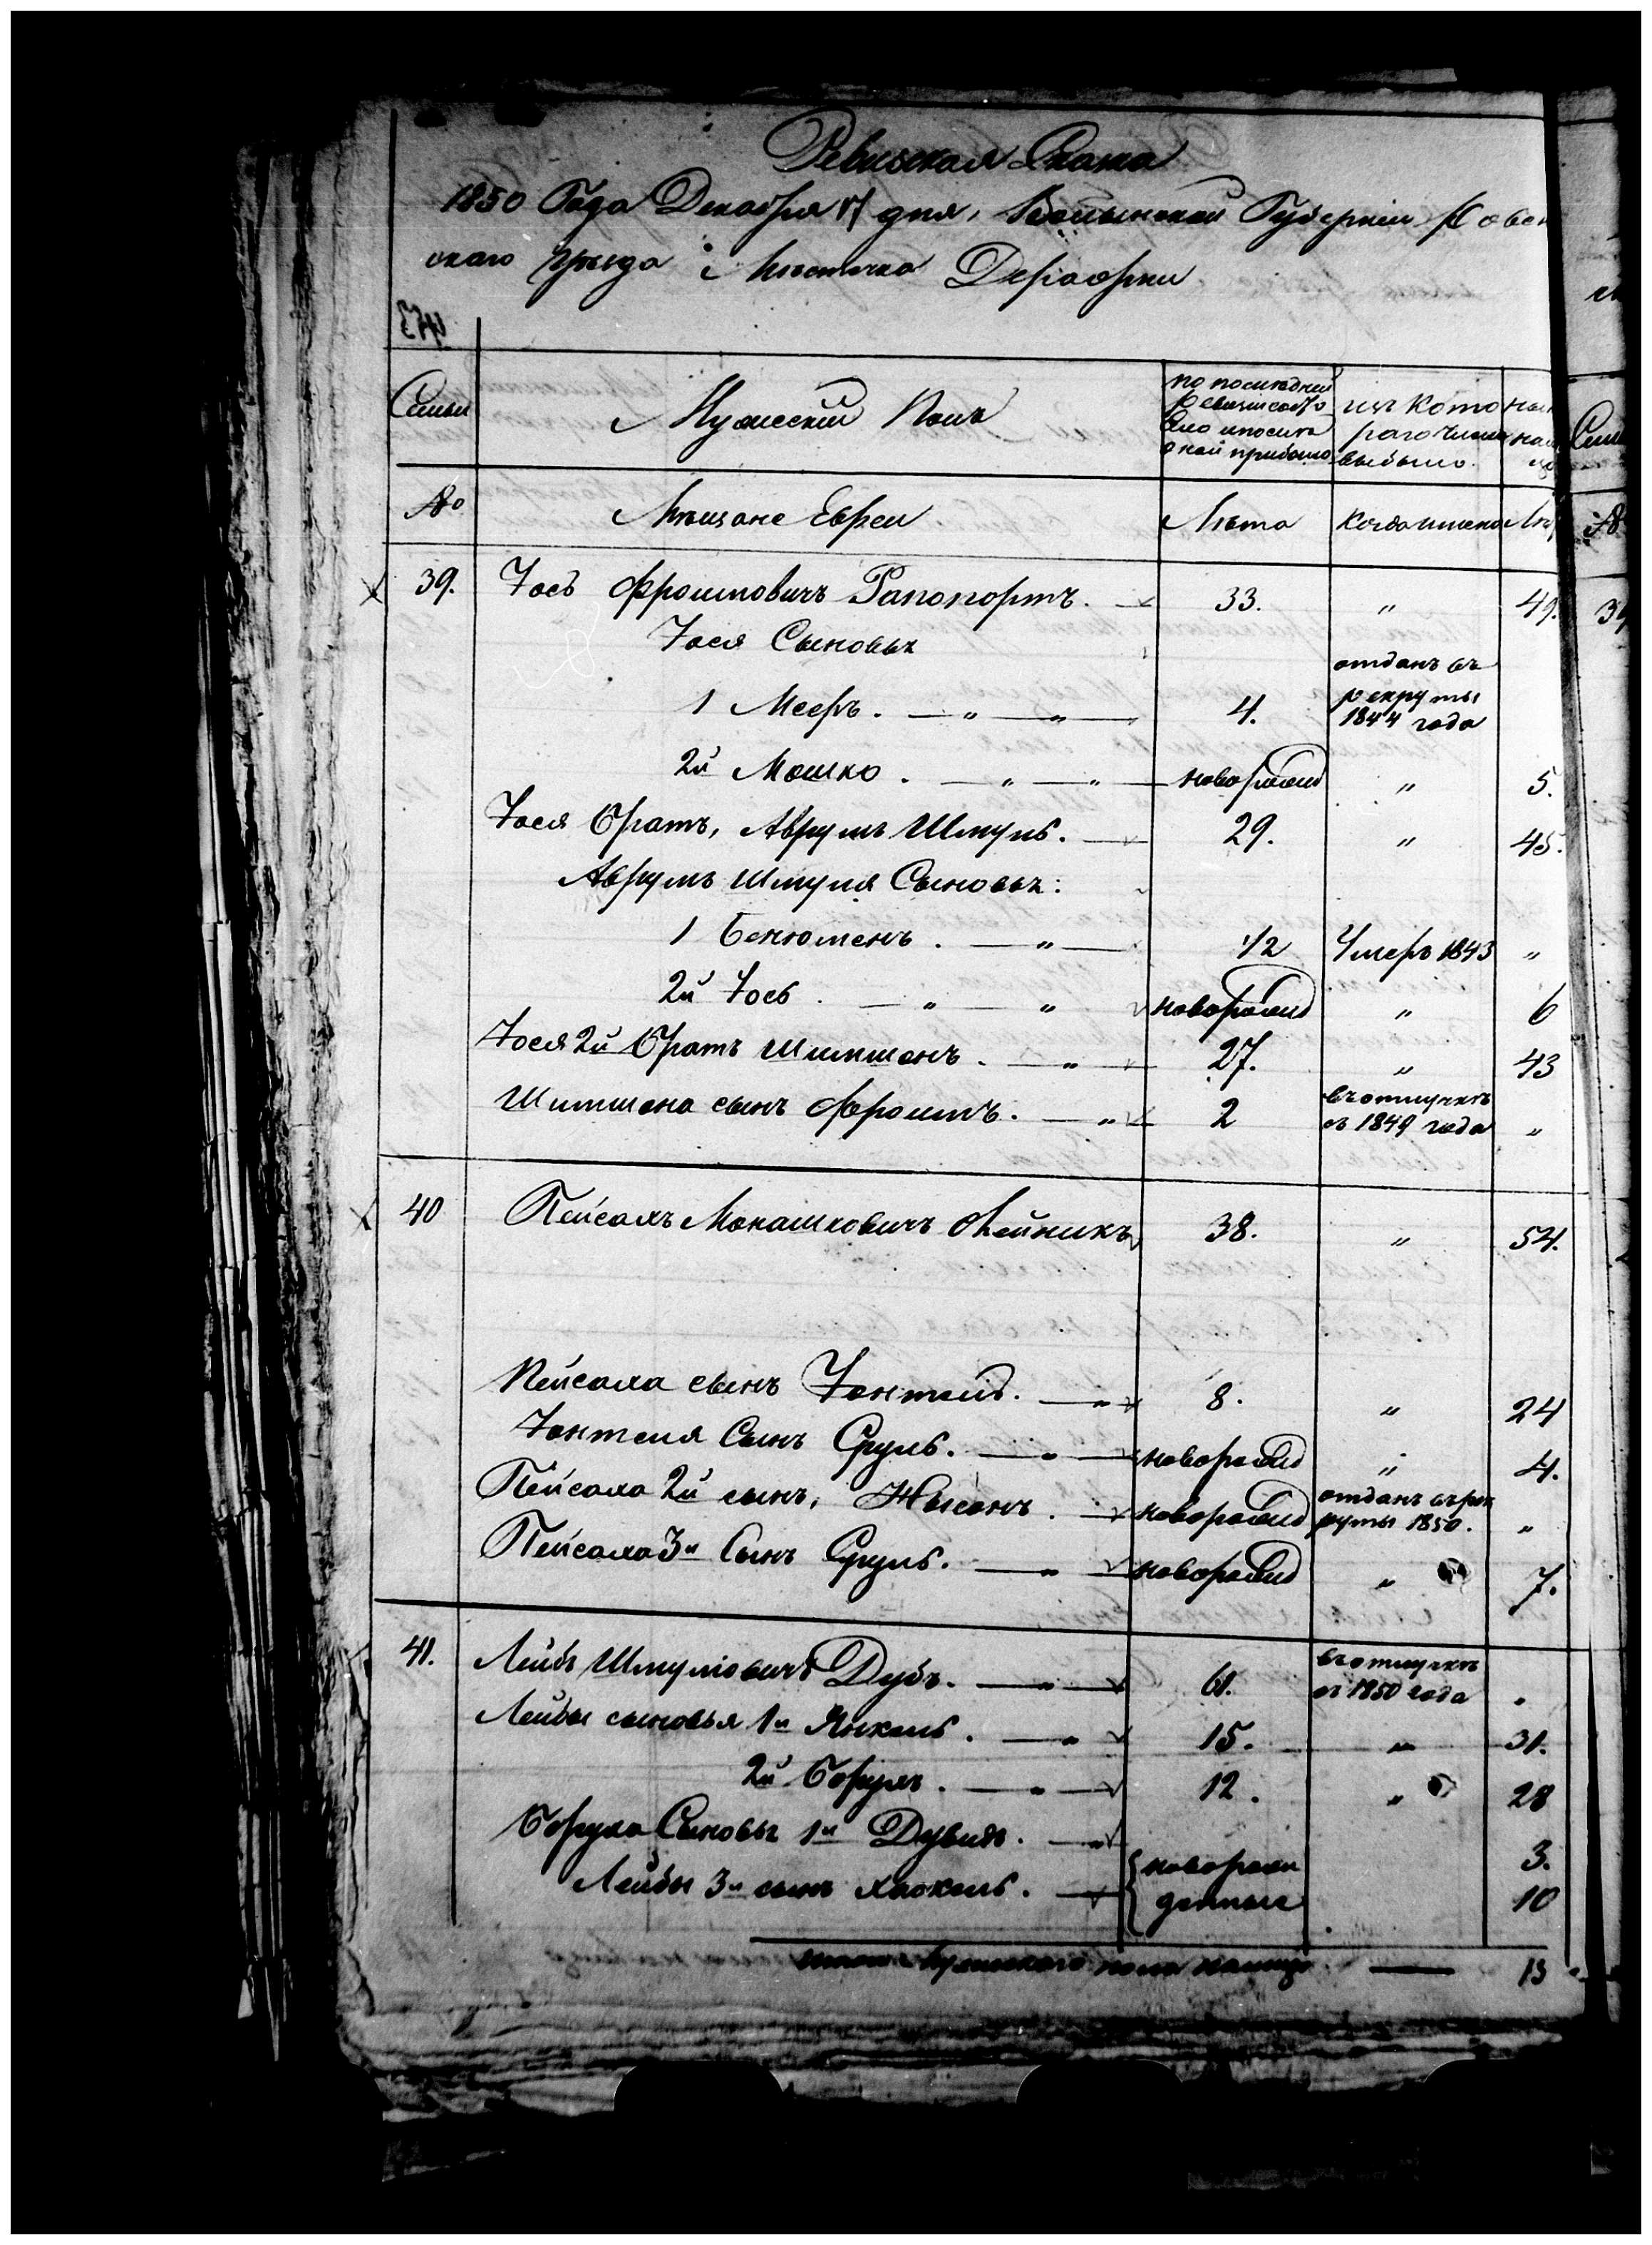 Ревизская Скаска
1850 Года Декабря дня, Волынской Губерніи Ровен
скаго уѣзда Мѣстечка Деражни
Семьи
Мужескій Полъ
по последней ревизіи состо
яло и после
оной прибыло
изъ Кото
раго числа
выбыло.
№
Мѣщане Евреи
Лѣта
Когда именно
39. Іось Фроимовичъ Рапопортъ. 33. " 49.
Іося Сыновья
1 Мееръ. — " — " 4. отданъ въ
рекруты
1844 года
2й Мошко. — " — " новорожд " 5.
Іося братъ, Аврумъ Шмуль. — 29. " 45.
Аврумъ Шмуля Сыновья:
1 Бенюменъ. — " — 1/2 Умеръ 1843 "
2й Іось. — " — " новорожд " 6
Іося 2й братъ Шимшонъ. — " 27. " 43
Шимшона сынъ Фроимъ. — " 2 въ отлучкѣ
съ 1849 года "
40 Пейсахъ Монашковичъ Олейникъ 38. " 54.
Пейсаха сынъ Іонтель. — " 8. " 24
Іонтеля Сынъ Сруль. — " — новорожд " 4.
Пейсаха 2й сынъ, Нысонъ. — новорожд отданъ въ рек
руты 1850. "
Пейсаха 3й Сынъ Сруль. — " — новорожд " 7.
41. Лейбъ Шмулiовичъ Дубъ. — " — 61. въ отлучкѣ
съ 1850 года "
Лейбы сыновья 1й Янкель. — " 15. " 31.
2й Борухъ. — " — 12. " 28
Боруха Сыновья 1й Дувидъ. — " новорож 3.
Лейбы 3й сынъ Хаскель. — денные 10
итого Мужескаго пола налицо — 13